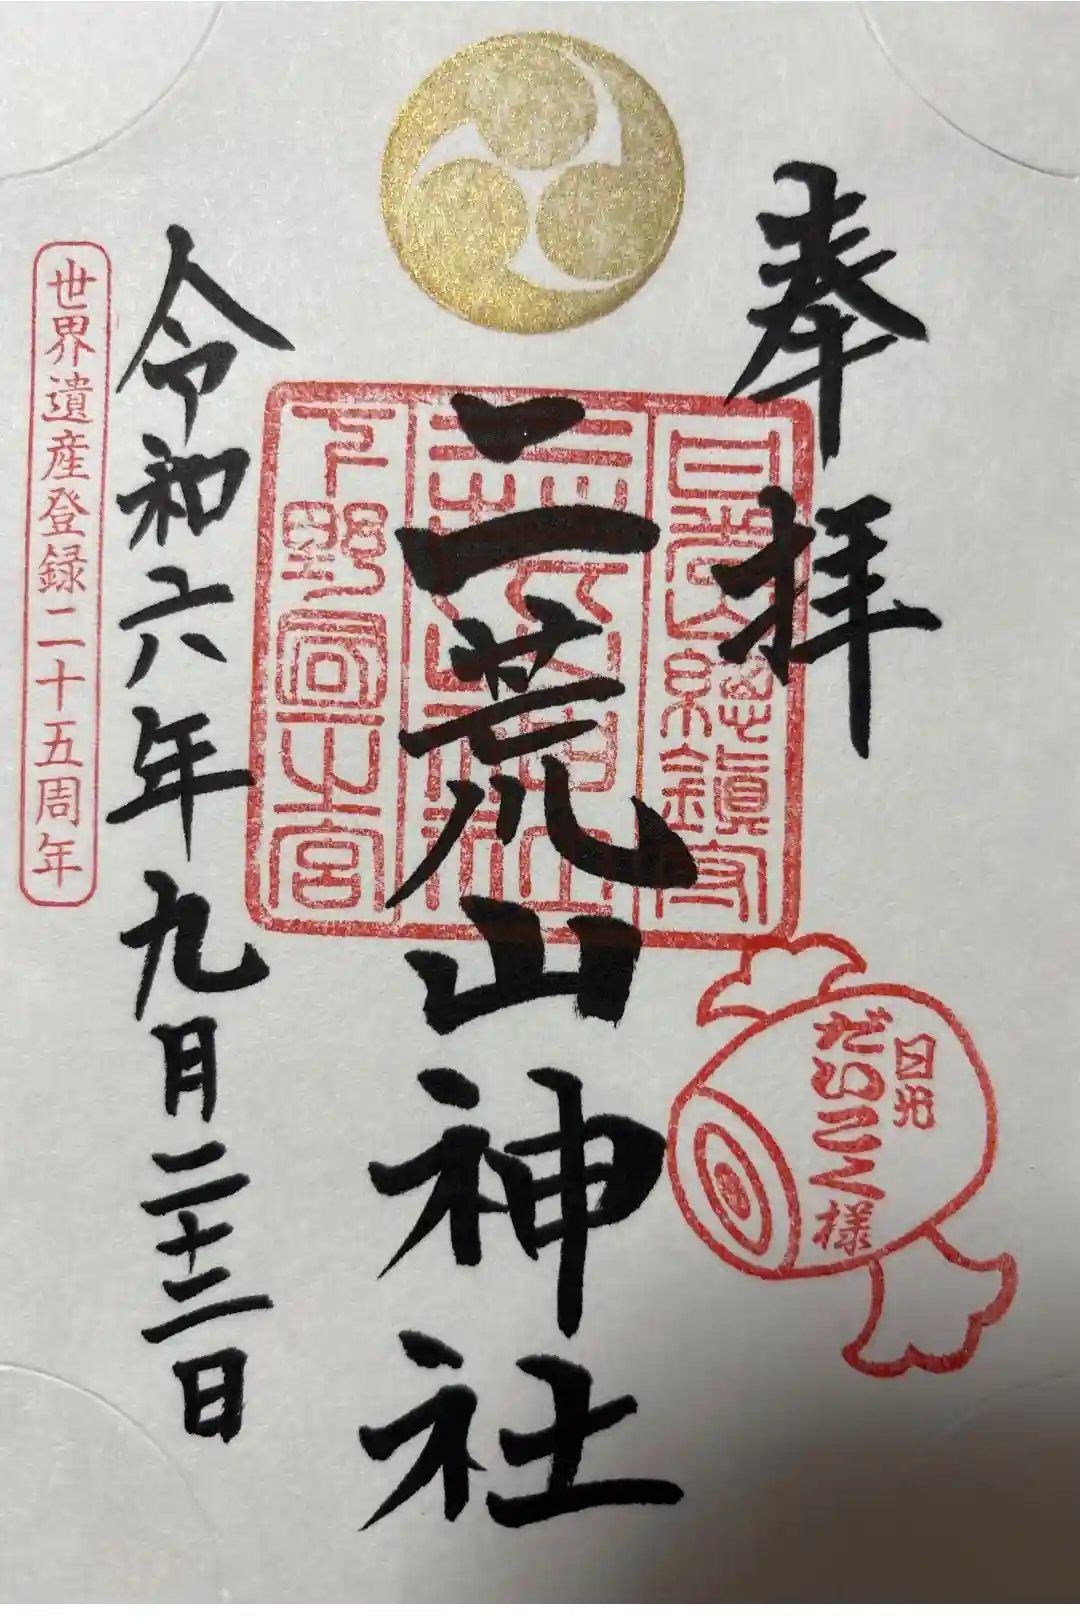 奉拝
日光山総鎮守
二荒山神社
下野國一之宮
日光
だいこく様
令和六年九月二十二日
世界遺産登録二十五周年